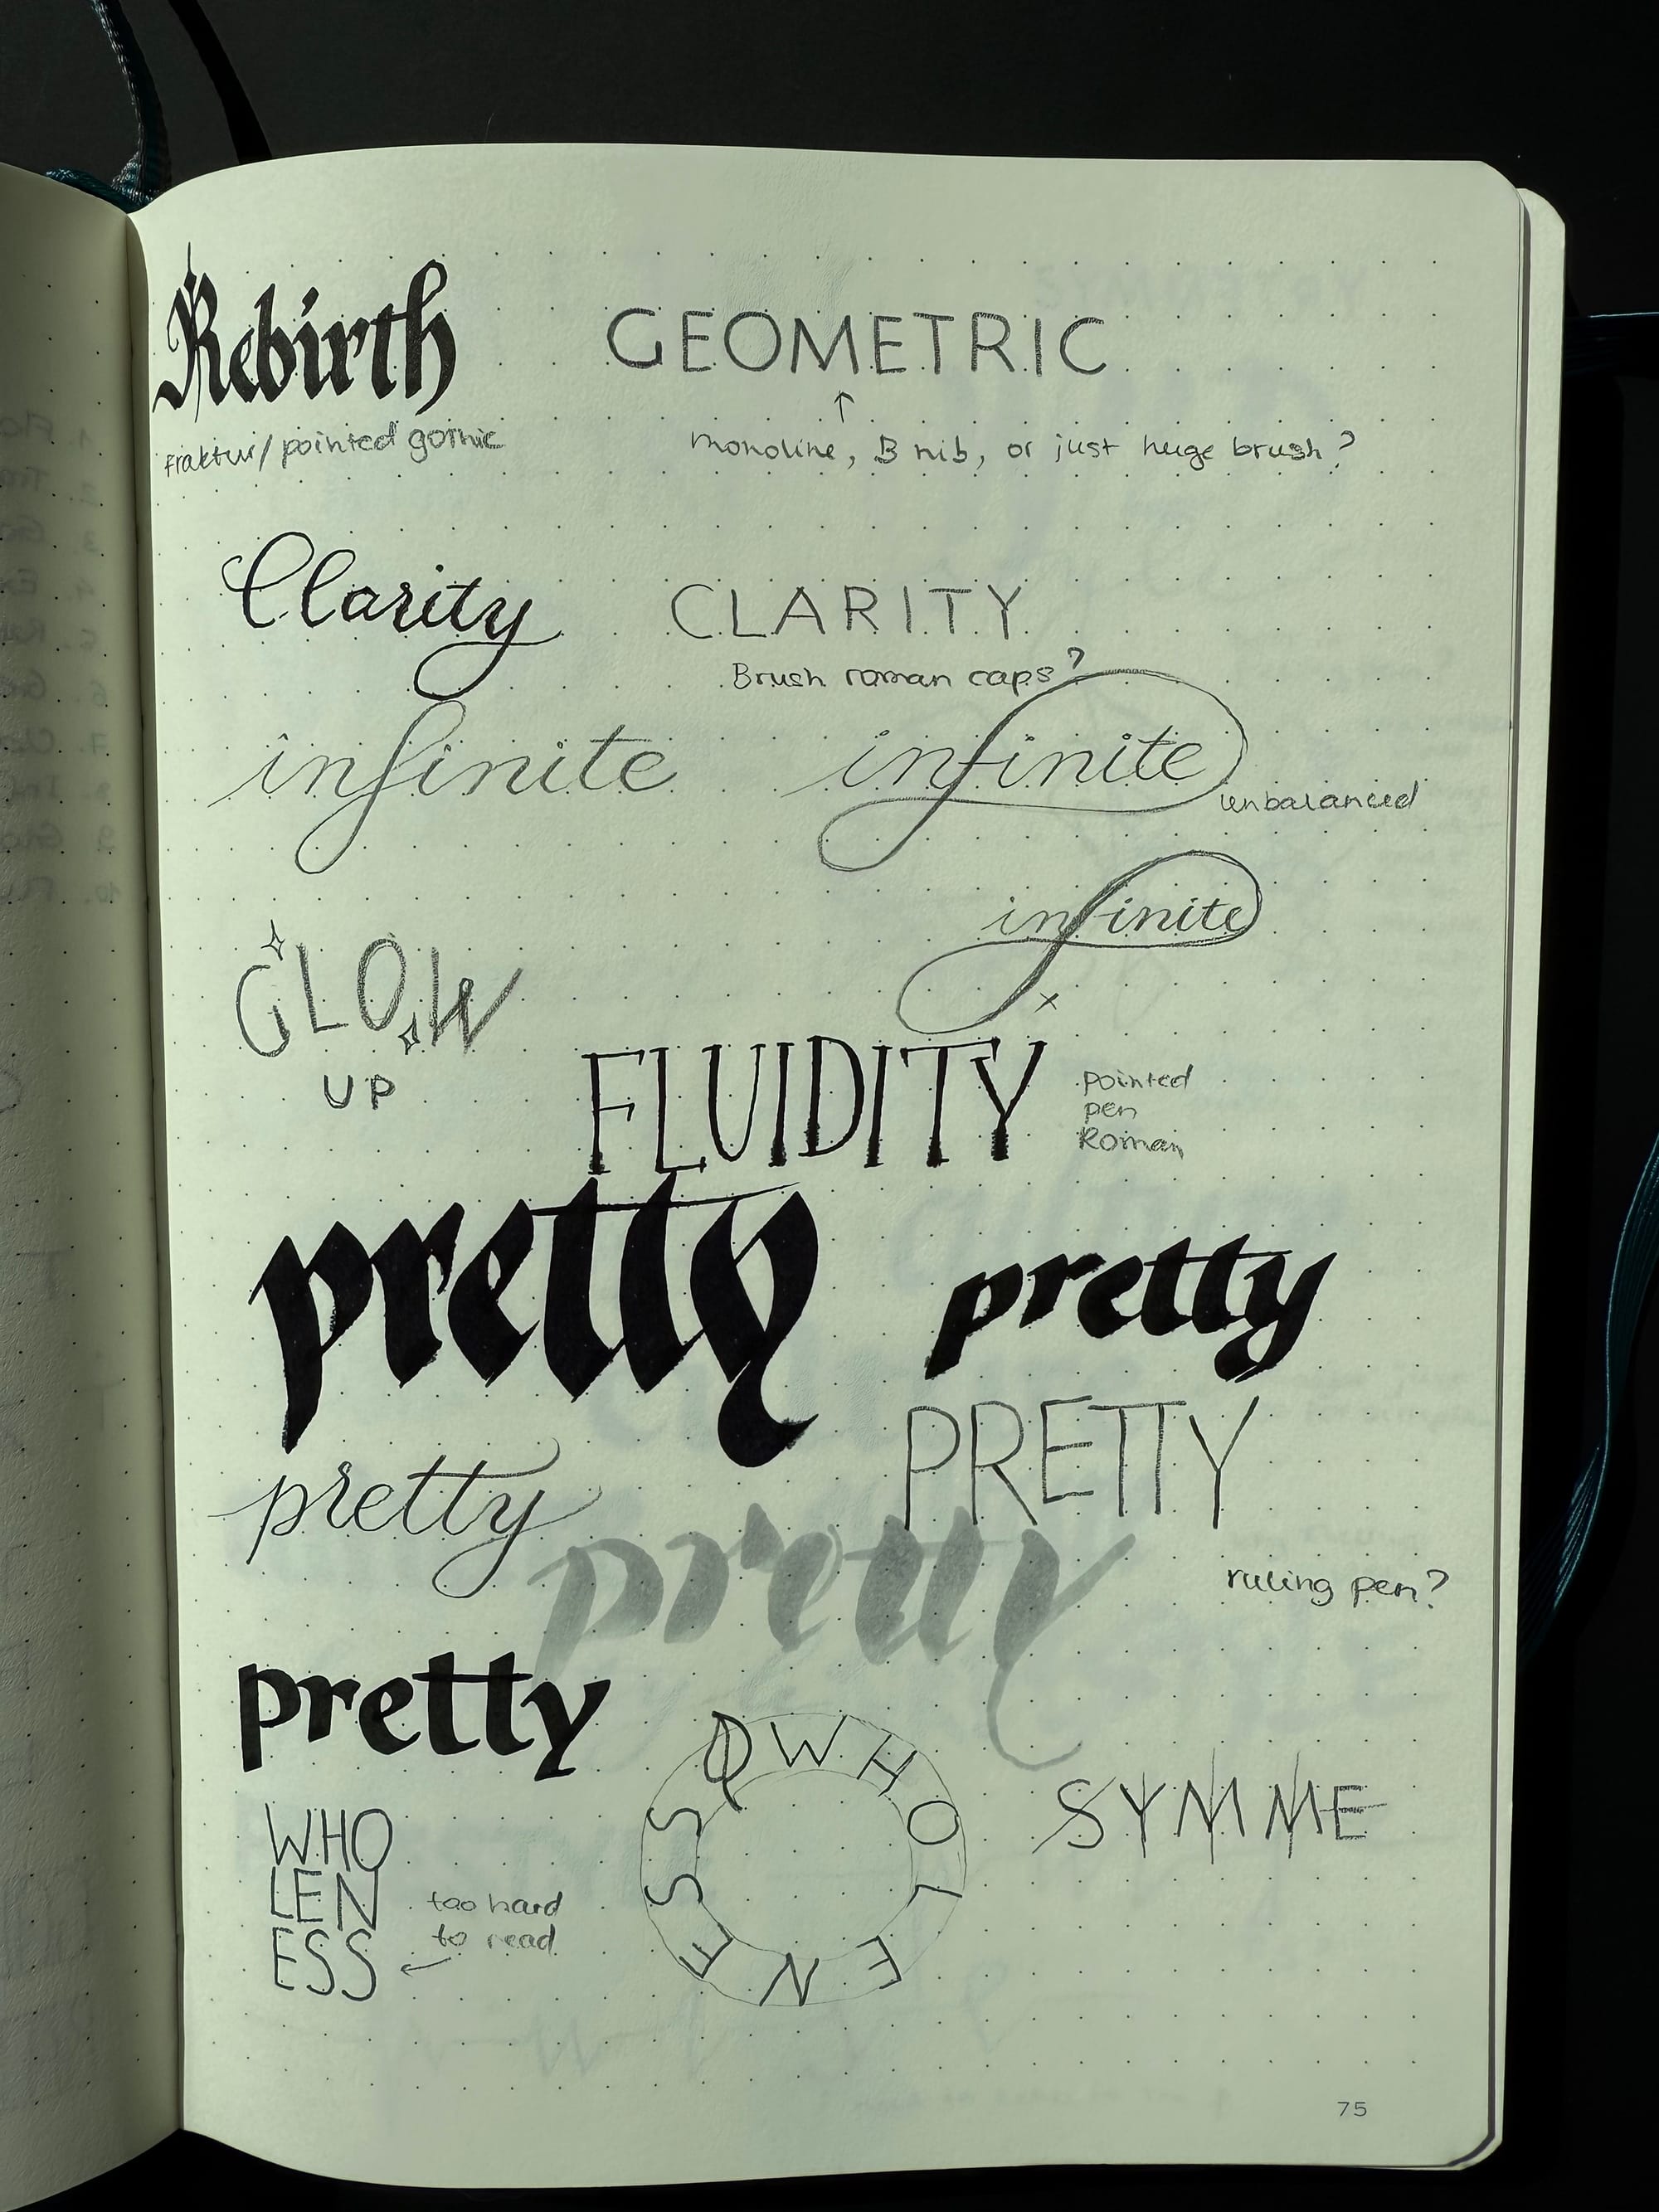 Rebirth
fraktur/pointed gothic
GEOMETRIC
↑
monoline, B nib, or just huge brush?
Clarity
CLARITY
Brush roman caps?
infinite
infinite
unbalanced
infinite
x
GLOW
UP
FLUIDITY
pointed
pen
Roman
pretty
pretty
PRETTY
pretty
pretty
ruling pen?
pretty
WHO
LEN
ESS
too hard
to read
WHOLENESS
SYMME
75